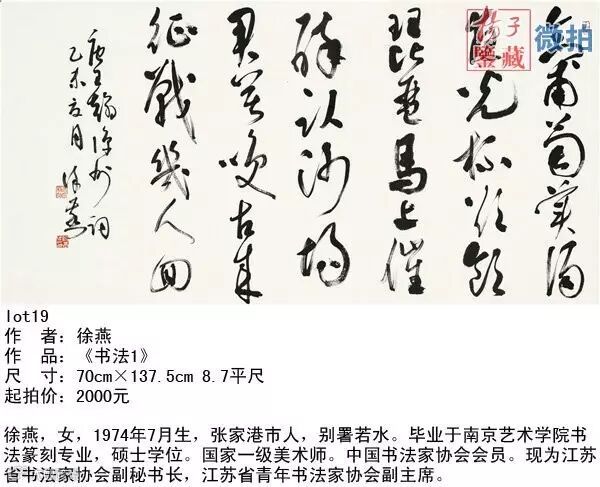 葡萄美酒
夜光杯欲飲
琵琶馬上催
醉卧沙場
君莫笑古來
征戰幾人回
唐王翰涼州詞
乙未夏月 徐燕
扬子
鉴藏
微拍
lot19
作　者：徐燕
作　品：《书法1》
尺　寸：70cm×137.5cm 8.7平尺
起拍价：2000元
徐燕，女，1974年7月生，张家港市人，别署若水。毕业于南京艺术学院书
法篆刻专业，硕士学位。国家一级美术师。中国书法家协会会员。现为江苏
省书法家协会副秘书长，江苏省青年书法家协会副主席。